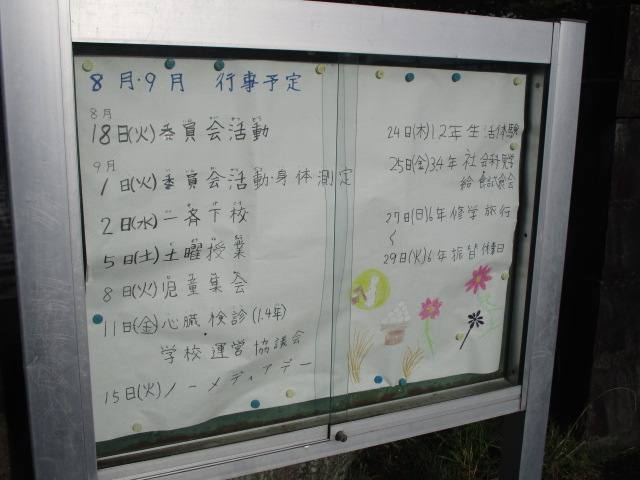 8月・9月 行事予定
8月
18日(火)委員会活動
9月
1日(火)委員会活動・身体測定
2日(水)一斉下校
5日(土)土曜授業
8日(火)児童集会
11日(金)心臓検診(1.4年)
学校運営協議会
15日(火)ノーメディアデー
24日(木)1.2年生活体験
25日(金)3.4年社会科見学
給食試食会
27日(日)6年修学旅行
〜
29日(火)6年振替休業日